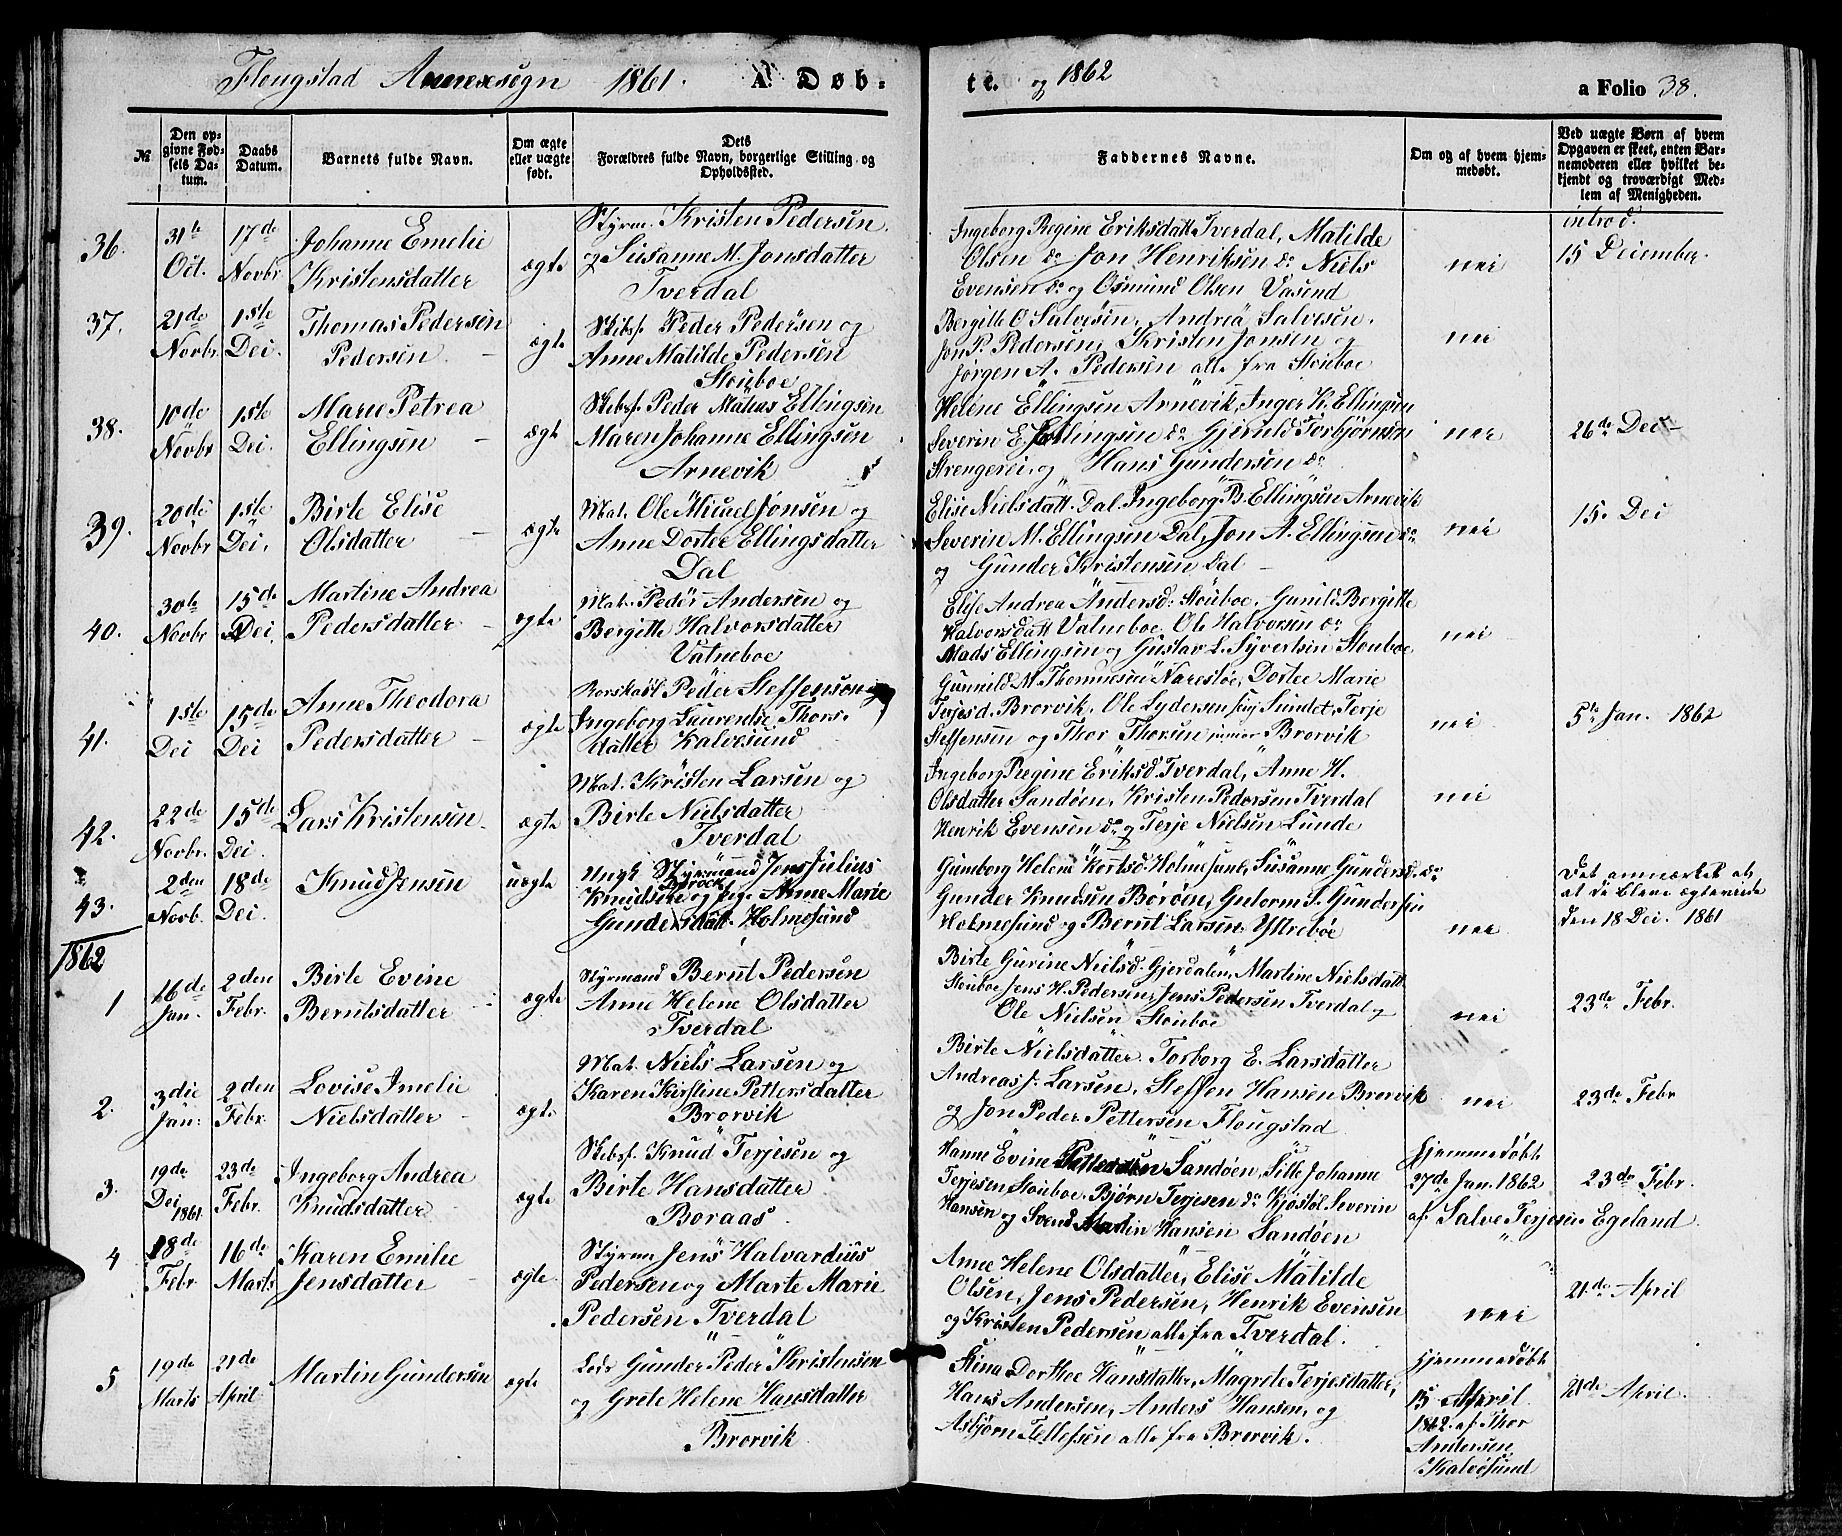 Flougstad Annexsogn 1861. A. Døb-
te. og 1862
a Folio 38.
№
Den opgivne Fødsels Datum.
Daabs Datum.
Barnets fulde Navn.
Om ægte eller uægte født.
Dets Forældres fulde Navn, borgerlige Stilling og Opholdssted.
Faddernes Navne.
Om og af hvem hjemmedøbt.
Ved uægte Børn af hvem Opgaven er skeet, enten Barnemoderen eller hvilket bekjendt og troværdigt Medlem af Menigheden.
36. 31te Oct. 17de Novbr Johanne Emelie Kristensdatter ægte
Styrm. Kristen Pedersen
og Susanne M. Jonsdatter
Tverdal
Ingeborg Regine Eriksdatt Tverdal, Matilde
Olsen do Jon Henriksen do Niels
Evensen do og Osmund Olsen Vasend
nei
introd.
15 December
37. 21de Novbr 1ste Dei. Thomas Pedersen Pedersen ægte
Skibsf. Peder Pedersen og
Anne Matilde Pedersen
Stouboe
Bergitte O Salvesen, Andrea Salvesen.
Jon P. Pedersen, Kristen Jonsen og
Jørgen A. Pedersen alle fra Stouboe
nei
38. 10de Novbr 1ste Dei. Marie Petrea Ellingsen ægte
Skibsf. Peder Mathias Ellingsen
Maren Johanne Ellingsen
Arnevik
Helene Ellingsen Arnevik, Inger K. Ellingsen
Severin E. Ellingsen do Gjeruld Torbjørnsen
Strengerei, og Hans Gundersen do
nei
26de Dei
39. 20de Novbr 1ste Dei. Birte Elise Olsdatter ægte
Mat. Ole Micael Jonsen og
Anne Dortee Ellingsdatter
Dal
Elise Nielsdatt. Dal, Ingeborg B. Ellingsen Arnevik
Severin M. Ellingsen Dal, Jon A. Ellingsen do
og Gunder Kristensen Dal
nei
15. Dei
40. 30te Novbr 15de Dei. Martine Andrea Pedersdatter ægte
Mat. Peder Andersen og
Bergitte Halvorsdatter
Vatneboe
Elise Andrea Andersd: Stouboe. Gunild Bergitte
Halvorsdatt Vatneboe. Ole Halvorsen do
Mads Ellingsen og Gustav L. Syvertsen Stouboe
nei
41. 1ste Dei 15de Dei Anne Theodora Pedersdatter ægte
Peder Steffenson og
Ingeborg Laurentie Thors-
datter Kalvesund
Gunnild M. Thommesen Narestøe, Dortee Marie
Terjesd. Brorvik, Ole Lydersen Sundet, Terje
Steffensen og Thor Thorsen junior Brorvik
nei
5te Jan. 1862
42. 22de Novbr. 15de Dei. Lars Kristensen ægte
Mat. Kristen Larsen og
Birte Nielsdatter
Tverdal
Ingeborg Regine Eriksd. Tverdal, Anne H.
Olsdatter Sandøen, Kristen Pedersen Tverdal
Henrik Evensen do og Terje Nielsen Lunde
nei
43. 2den Novb. 18de Dei. Knud Jensen uægte
Ungk. Styrmand Jens Julius
Knudsen og Pige Anne Marie
Gundersdatt. Holmesund
Gunborg Helene Kortsd Holmesund, Susanne Gundersd. do
Gunder Knudsen Borøen, Gutorm S. Gundersen
Holmesund og Bernt Larsen, Yttreboe
nei
Det anmærket at
at de bleve ægteviede
den 18 Dei. 1861
1862
1 16de Jan. 2den Febr. Birte Evine Berntsdatter ægte
Styrmand Bernt Pedersen
Anne Helene Olsdatter
Tverdal
Birte Gurine Nielsd. Gjerdalen, Martine Nielsdatt
Stouboe Jens H. Pedersen, Jens Pedersen Tverdal og
Ole Nielsen Stouboe
nei
23de Febr.
2. 3die Jan: 2den Febr. Lovise Amelie Nielsdatter ægte
Mat. Niels Larsen og
Karen Kirstine Pettersdatter
Brorvik
Birte Nielsdatter. Torborg E. Larsdatter
Andreas J. Larsen, Steffen Hansen Brorvik
og Jon Peder Pettersen Flougstad
nei
23de Febr
3. 19de Dei 1861. 23de Febr. Ingeborg Andrea Knudsdatter ægte
Skibsf. Knud Terjesen og
Birte Hansdatter
Boraas
Hanne Evine Sandøen, Sille Johanne
Terjesen Stouboe. Bjørn Terjesen do Kjøstol Severin
Hansen og Svend Martin Hansen Sandøen
Hjemmedøbt
27de Jan. 1862
af Salve Terjesen Egeland
23de Febr.
4 18de Febr 16de Marts Karen Emilie Jensdatter ægte
Styrm Jens Halvardius
Pedersen og Marte Marie
Pedersen Tverdal
Anne Helene Olsdatter, Elise Matilde
Olsen, Jens Pedersen, Henrik Evensen
og Kristen Pedersen alle fra Tverdal.
nei
21de April
5 19de Marts 21de April Martin Gundersen ægte
Lods Gunder Peder Kristensen
og Grete Helene Hansdatter
Brorvik
Stina Dorthee Hansdatter, Magrete Terjesdatter,
Hans Andersen, Anders Hansen, og
Asbjørn Tellefsen alle fra Brorvik.
Hjemmedøbt
15 April
1862. af Thor
Andersen
Kalvøsund
21de April.